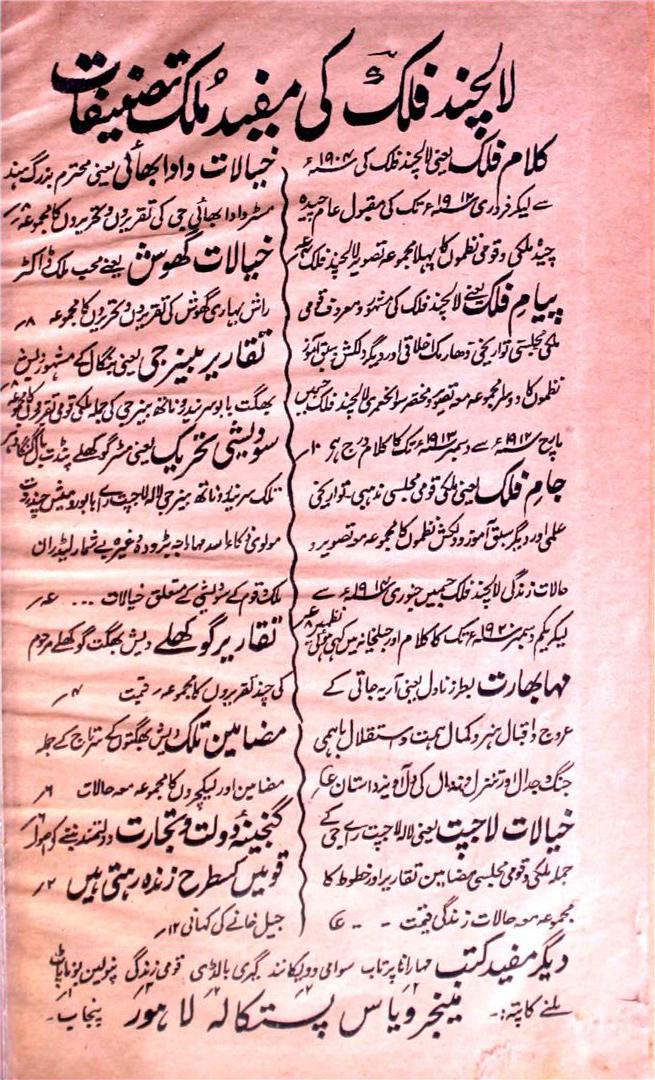 لالچند فلک کی مفید مُلک تصنیفات
کلام فلک یعنی لالچند فلک کی ۱۹۰۴ء
سے لیکر فروری ۱۹۱۲ء تک کی مقبول عام چیدہ
چیدہ ملکی و قومی نظموں کا پہلا مجموعہ تصویر لالچند فلک
پیام فلک یعنے لالچند فلک کی مشہور و معروف قومی
ملکی مجلسی تواریخی دھارمک اخلاقی اور دیگر دلکش سبق آموز
نظموں کا دوسرا مجموعہ معہ تصویر و مختصر سوانحعمری لالچند فلک جسمیں
مارچ ۱۹۱۲ء سے دسمبر ۱۹۱۳ء تک کا کلام درج ہے ۱۰؍
جام فلک یعنی ملکی قومی مجلسی مذہبی تواریخی
علمی اور دیگر سبق آموز و دلکش نظموں کا مجموعہ معہ تصویر و
حالات زندگی لالچند فلک جسمیں جنوری ۱۹۱۴ء سے
لیکر یکم دسمبر ۱۹۲۰ء تک کا کلام اور جیلخانہ میں کہی ہوئی نظمیں
مہابھارت بطرز ناول یعنی آریہ جاتی کے
عروج و اقبال ہنر و کمال ہمت و استقلال باہمی
جنگ و جدال اور تنزل و زوال کی دلآویز داستان
خیالات لاجپت یعنی لالہ لاجپت رائے جی کے
جملہ ملکی و قومی مجلسی مضامین تقاریر اور خطوط کا
مجموعہ معہ حالات زندگی قیمت
خیالات دادا بھائی یعنی محترم بزرگ ہند
مسٹر دادا بھائی جی کی تقریروں و تحریروں کا مجموعہ
خیالات گھوش یعنے محب ملک ڈاکٹر
راش بہاری گھوش کی تقریروں و تحریروں کا مجموعہ ۸؍
تقاریر بینرجی یعنی بنگال کے مشہور دیش
بھگت بابو سریندر ناتھ بینرجی کی جملہ ملکی قومی تقریروں کا مجموعہ
سودیشی تحریک یعنی مسٹر گوکھلے پنڈت بال گنگا دھر
تلک سریندر ناتھ بینرجی لالہ لاجپت رائے بابو رومیش چندر دت
مولوی ذکاء اللہ مہاراجہ بڑودہ وغیرہ بے شمار لیڈران
ملک و قوم کے سودیشی کے متعلق خیالات ...
تقاریر گوکھلے دیش بھگت گوکھلے مرحوم
کی چند تقریروں کا مجموعہ قیمت ۴؍
مضامین تلک دیش بھگتوں کے سرتاج کے جملہ
مضامین اور لیکچروں کا مجموعہ معہ حالات ۶؍
گنجینۂ دولت و تجارت دولتمند بننے کے اصول
قومیں کسطرح زندہ رہتی ہیں ۲؍
جیل خانے کی کہانی ۱۲؍
دیگر مفید کتب مہارانا پرتاب سوامی وویکانند گیری بالڈی قومی زندگی نپولین بوناپاٹ
ملنے کا پتہ:- مینجر ویاس پستکالہ لاہور پنجاب۔